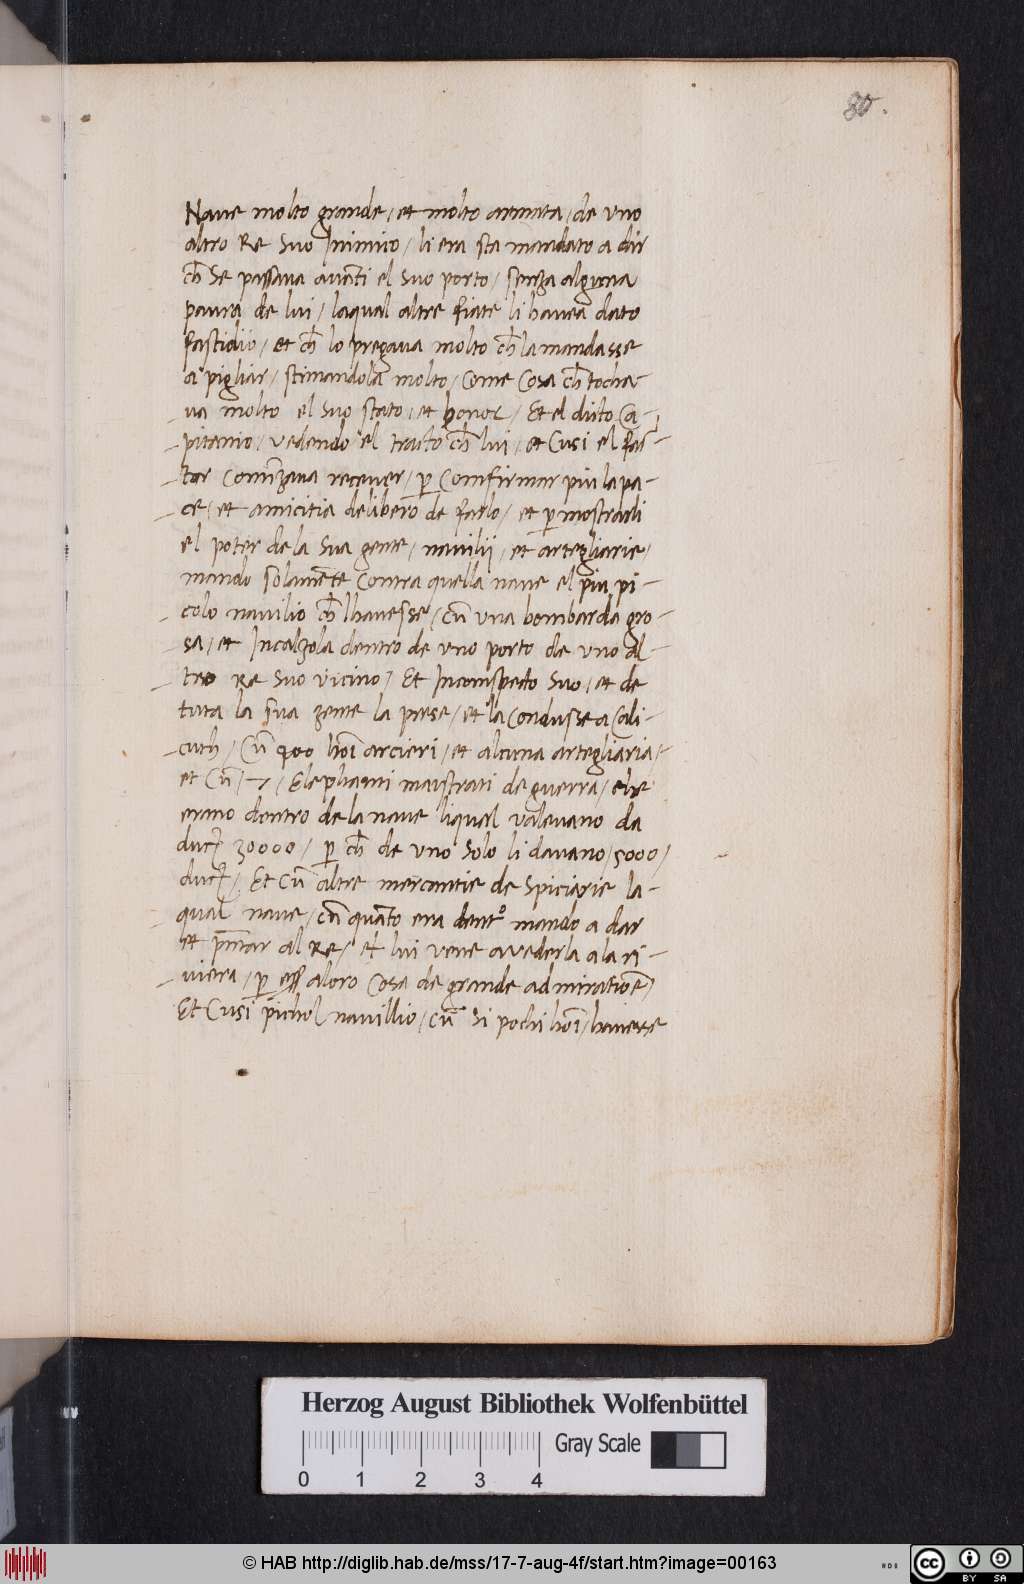 80.
Naue molto grande / et molto armata / de vno
altro Re Suo Inimico / li era sta mandato a dir
ch̄ Se passaua auāti el suo porto / senza alguna
paura de lui / laqual altre fiate li hauea dato
fastidio / et ch̄ lo pregaua molto ch̄ la mandasse
a pigliar / stimandola molto / come Cosa ch̄ tocha-
-ua molto el suo stato / et honor / Et el dicto Ca-
-pitanio / vedendo el tracto ch̄ lui / et Cusi el fat-
tor Comēzaua receuer / p̱ Comfirmar piu la pa-
-ce / et amicitia delibero de farlo / et p̱ mostrarli
el poter de la Sua gente / nauilij / et artegliarie /
mando solamēte Contra quella naue el piu pi-
-colo nauilio ch̄ lhauesse / cū vna bombarda gro-
-sa / et Incalzola dentro de vno porto de vno al-
-tro Re Suo vicino / Et Inconspecto Suo / et de
tuta la sua zente la prese / et la Condusse a Cali-
-cuth / Cū 400 hoī arcieri / et alcuna artegliaria /
et Cū / 7 / Elephanti maistrati de guerra / ch̄e
erano dentro de la naue liqual valeuano da
duct̄ 30000 / p̱ ch̄ de vno Solo li dauano / 5000 /
duct̄ / Et Cū altre mercantie de Spiciarie la-
qual naue / cū quāto era dentº mando a dar
et p̄ntar al Re / et lui vene a vederla a la ri-
-uiera / p̱ eſſ aloro Cosa de grande admiratiōe /
Et Cusi pichol nauillio / cū Si pochi hoī / hauere
Herzog August Bibliothek Wolfenbüttel
Gray Scale
0 1 2 3 4
© HAB http://diglib.hab.de/mss/17-7-aug-4f/start.htm?image=00163
HAB
cc BY SA